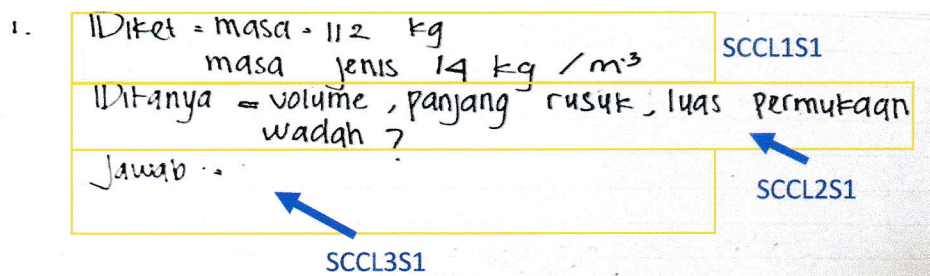 1. Diket = masa = 112 kg
masa jenis 14 kg / m³
SCCL1S1
Ditanya = volume, panjang rusuk, luas permukaan
wadah ?
SCCL2S1
Jawab :
SCCL3S1